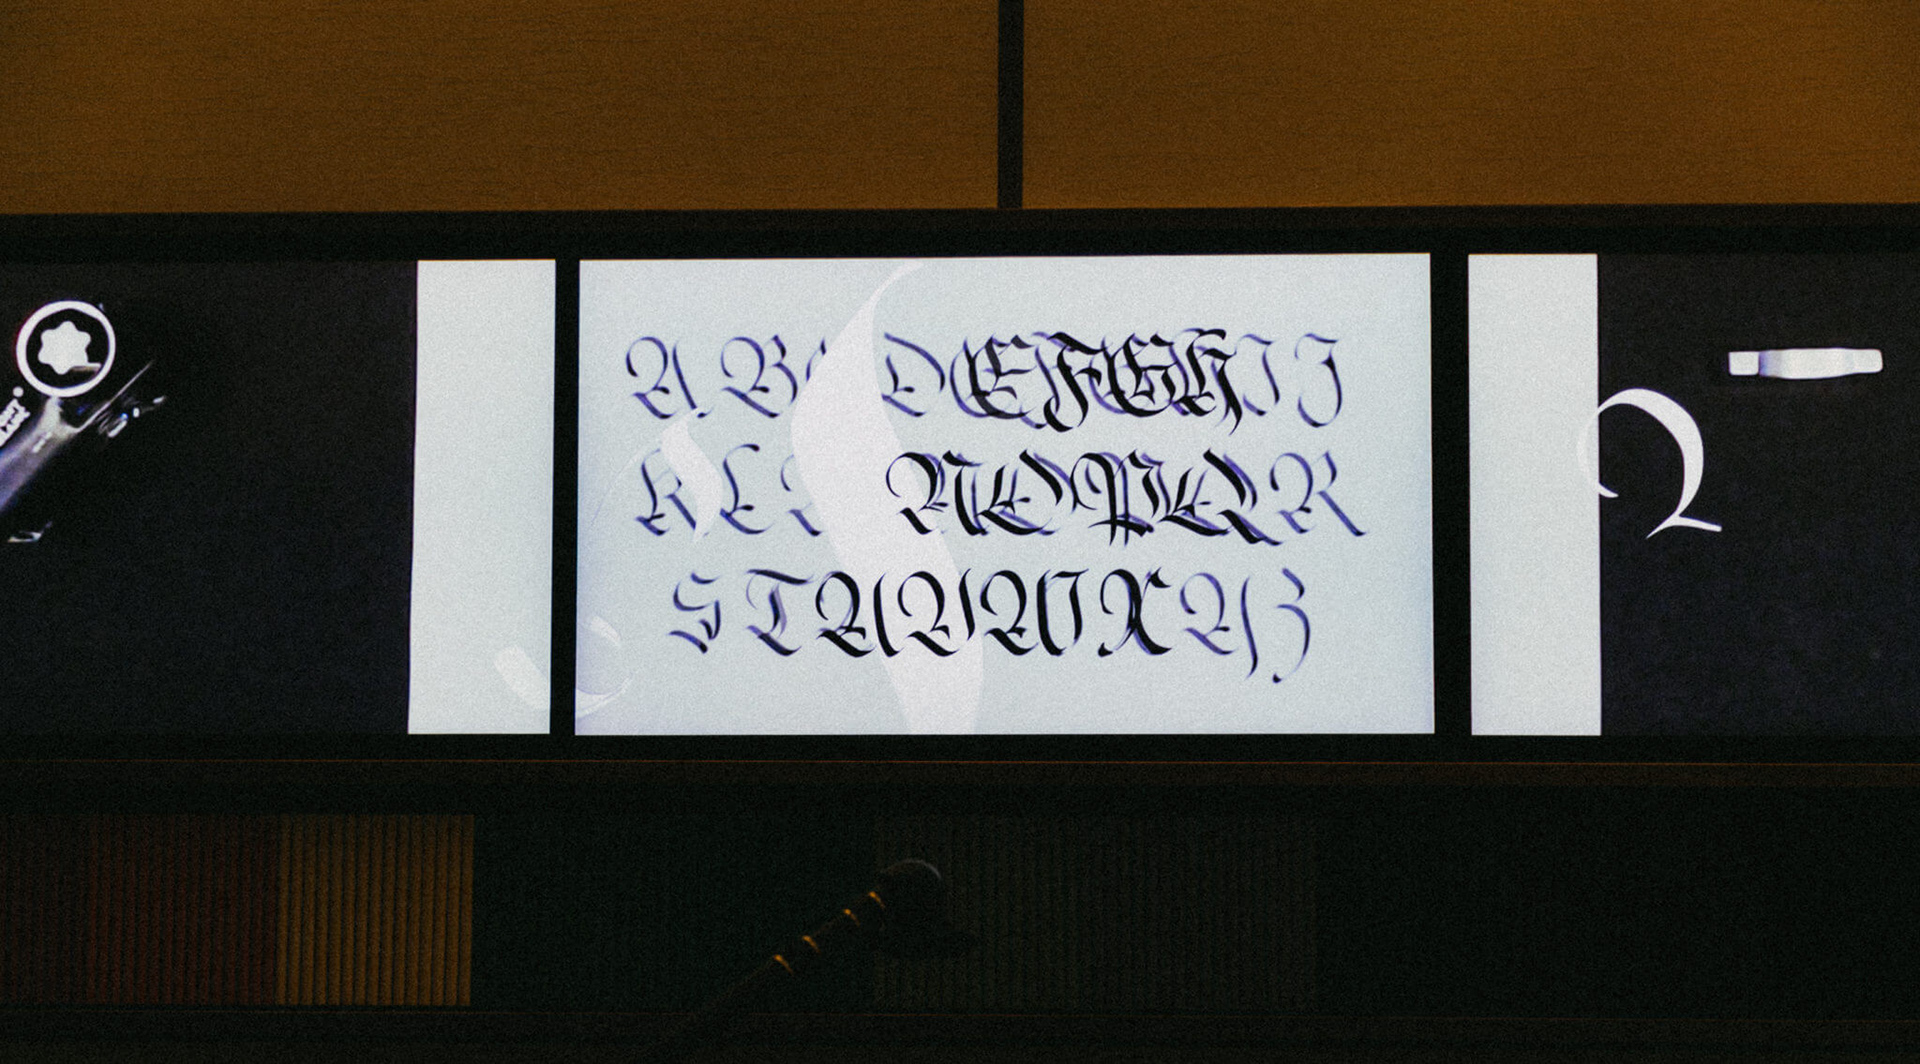 A B C D E F G H I J
K L M N O P Q R
S T U V W X Y Z